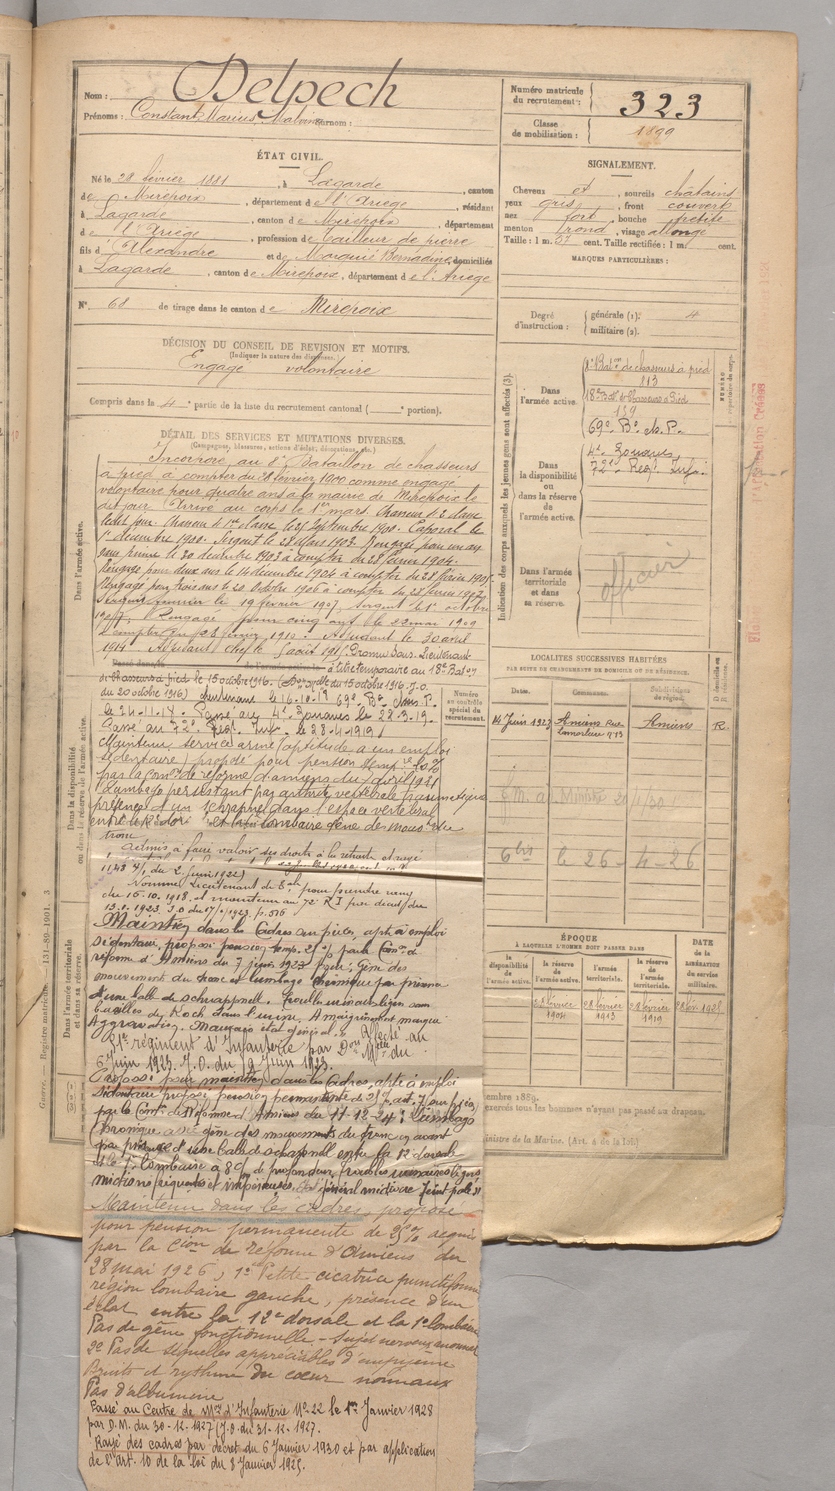 Nom : Delpech
Prénoms : Constant, Marius, Malvin Surnom :
ÉTAT CIVIL.
Né le 28 février 1881, à Lagarde, canton
de Mirepoix, département de l'Ariège, résidant
à Lagarde, canton de Mirepoix, département
de l'Ariège, profession de tailleur de pierre
fils d'Alexandre et de Marquié Bernadine, domiciliés
à Lagarde, canton de Mirepoix, département de l'Ariège
N° 68 de tirage dans le canton de Mirepoix
DÉCISION DU CONSEIL DE REVISION ET MOTIFS.
(Indiquer la nature des dispenses.)
Engagé volontaire
Compris dans la 4e partie de la liste du recrutement cantonal ( e portion).
DÉTAIL DES SERVICES ET MUTATIONS DIVERSES.
(Campagnes, blessures, actions d'éclat, décorations, etc.)
Dans l'armée active.
Incorporé au 8e Bataillon de chasseurs
à pied à compter du 28 février 1900 comme engagé
volontaire pour quatre ans à la mairie de Mirepoix le
dit jour. Arrivé au corps le 1er mars. Chasseur de 2e classe
ledit jour. Chasseur de 1re classe le 25 septembre 1900. Caporal le
1er décembre 1900. Sergent le 28 Mars 1903. Rengagé pour un an
le 20 décembre 1903 à compter du 28 février 1904.
Rengagé pour deux ans le 14 décembre 1904 à compter du 28 février 1905.
Rengagé pour trois ans le 20 Octobre 1906 à compter du 28 février 1907.
Sergent fourrier le 19 février 1907, Sergent le 1er octobre
1907. Rengagé pour cinq ans le 22 mai 1909
à compter du 28 février 1910. Adjudant le 30 avril
1911. Adjudant chef le 5 août 1915. Promu Sous-Lieutenant
à titre temporaire au 18e Baton
de chasseurs à pied le 15 octobre 1916. (Don Mlle du 15 octobre 1916. J.O.
du 20 octobre 1916) Lieutenant le 16.10.18 69e Bon Sus. P.
le 24.11.18. Passé au 4e Zouaves le 22-3-19.
Passé au 72e Régt Inf. le 28-4-1919.
Dans la disponibilité ou dans la réserve de l'armée active.
Numéro au contrôle spécial du recrutement.
Maintenu service armé (aptitude à un emploi
sédentaire) proposé pour pension temp.
par la Comon de réforme d'Amiens du 7 avril 1921
Lumbago persistant par arthrite vertébrale traumatique
présence d'un schrapnel dans l'espace vertébral
entre la 12e dors. et la 1e lombaire gêne des mouvts du
tronc.
Admis à faire valoir ses droits à la retraite
du 2 juin 1922)
Nommé Lieutenant de Rve pour prendre rang
du 16.10.1918 et maintenu au 72e R.I par décret du
13.1.1923 J.O du 17/1/1923 p. 516
Dans l'armée territoriale et dans sa réserve.
Maintien dans les Cadres sur pièces, apte à emploi
sédentaire, proposé pension temp. 25% par la Comon de
réforme d'Amiens du 7 juin 1923 pour : gêne des
mouvement du tronc et lumbago chronique par présence
d'une balle de schrapnell. Troubles urinaires légers sans
bacilles de Koch dans l'urine. Amaigrissement marqué.
Aggravation. Mauvais état général. Affecté au
51e régiment d'Infanterie par Don Mlle du
6 Juin 1923. J.O. du 9 Juin 1923.
Proposé pour maintien dans les Cadres, apte à emploi
sédentaire proposé pension permanente de 25%
par la Comon de Réforme d'Amiens du 11-12-24 : lumbago
chronique avec gêne des mouvements du tronc en avant
par présence d'une balle de schrapnell entre la 12 dorsale
et la 1e Lombaire à 8c/ de profondeur, troubles urinaires légers
mictions fréquentes et impérieuses. Etat général médiocre. Teint pâle
Maintenu dans les cadres, proposé
pour pension permanente de 25% acquis
par la Cion de réforme d'Amiens du
28 mai 1926, 1° Petite cicatrice punctiforme
région lombaire gauche, présence d'un
éclat entre la 12e dorsale et la 1e lombaire
Pas de gêne fonctionnelle - Sujet nerveux
2° Pas de séquelles appréciables d'empyème
Bruits et rythme du cœur normaux
Pas d'albumine
Passé au Centre de Mon d'Infanterie N° 22 le 1er Janvier 1928
par D.M. du 30-12-1927 (J.O. du 31-12-1927.
Rayé des cadres par décret du 6 Janvier 1930 et par application
de l'art. 10 de la loi du 8 Janvier 1925.
Guerre. — Registre matricule. — 131-89-1901. 3
Numéro matricule du recrutement : 323
Classe de mobilisation : 1899
SIGNALEMENT.
Cheveux et, sourcils châtains
yeux gris, front couvert
nez fort, bouche petite
menton rond, visage allongé
Taille : 1 m. 57 cent. Taille rectifiée : 1 m. cent.
MARQUES PARTICULIÈRES :
Degré d'instruction : générale (1). 4
militaire (2).
Indication des corps auxquels les jeunes gens sont affectés (3).
NUMÉRO
Dans l'armée active.
8e Baton de chasseurs à pied
113
18e Bat. de Chasseurs à Pied
139
69e Bn S. P.
Dans la disponibilité ou dans la réserve de l'armée active.
4e Zouaves,
72e Régt Infie
Dans l'armée territoriale et dans sa réserve.
officier
LOCALITÉS SUCCESSIVES HABITÉES
PAR SUITE DE CHANGEMENTS DE DOMICILE OU DE RÉSIDENCE.
Dates. Communes. Subdivisions de région. D domicile ou R résidence.
14 Juin 1923 Amiens Rue Lamorlière n°13 Amiens R.
E.M. au Ministre 20/1/30
6 bis le 26-4-26
ÉPOQUE
À LAQUELLE L'HOMME DOIT PASSER DANS
la disponibilité de l'armée active. la réserve de l'armée active. l'armée territoriale. la réserve de l'armée territoriale. DATE de la LIBÉRATION du service militaire.
28 février 1904 28 février 1913 28 février 1919 28 fév. 1925
embre 1889.
exercés tous les hommes n'ayant pas passé au drapeau.
inistre de la Marine. (Art. 4 de la loi)